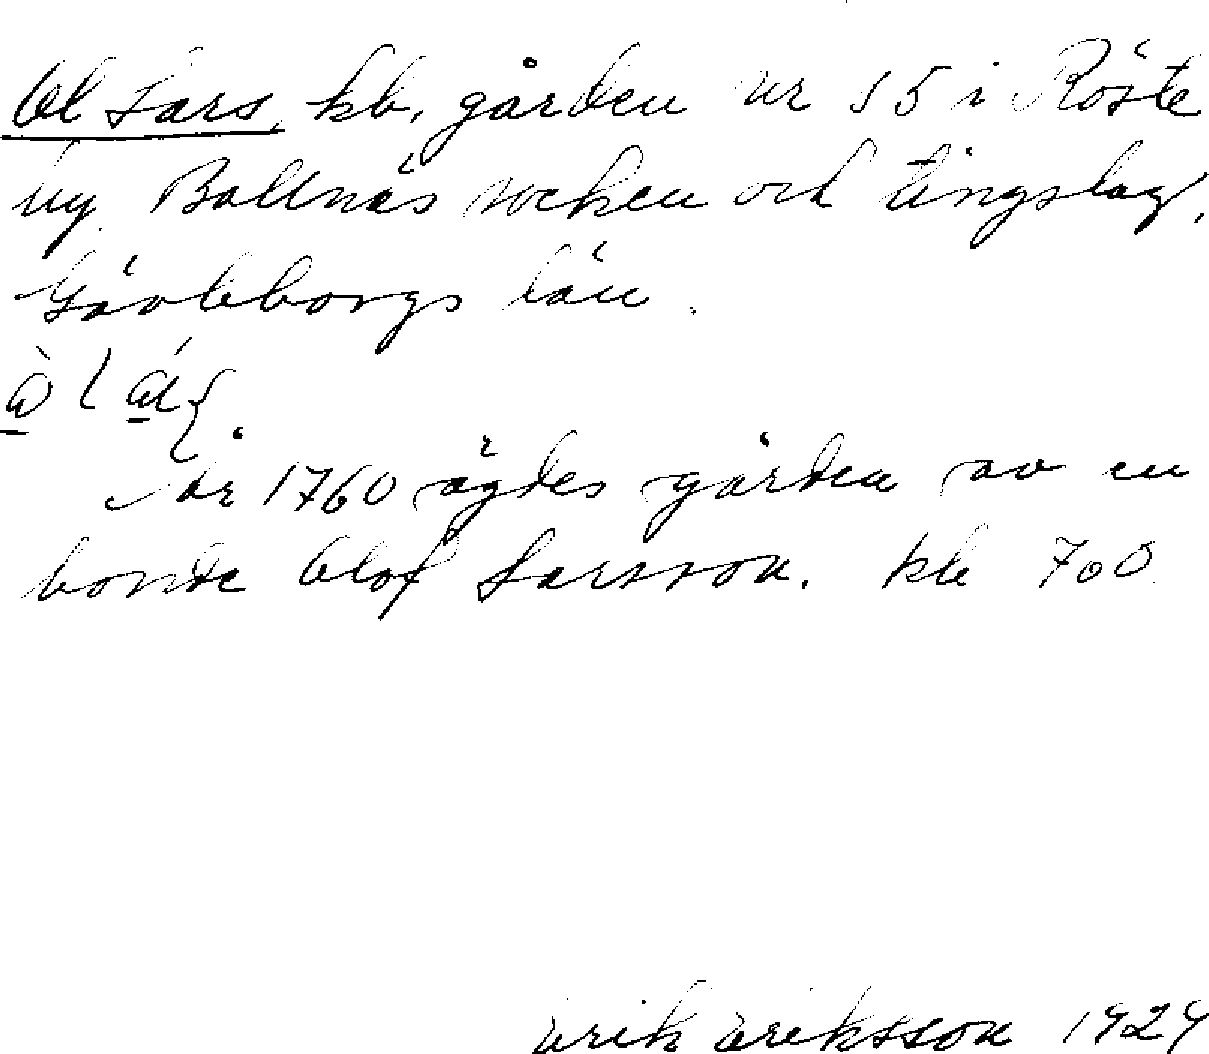 Ol Lars, kb, gården nr 15 i Röste
by Bollnäs socken och tingslag,
Gävleborgs län.
År 1760 ägdes gården av en
bonde Olof Larsson. kb 700
Erik Eriksson 1929